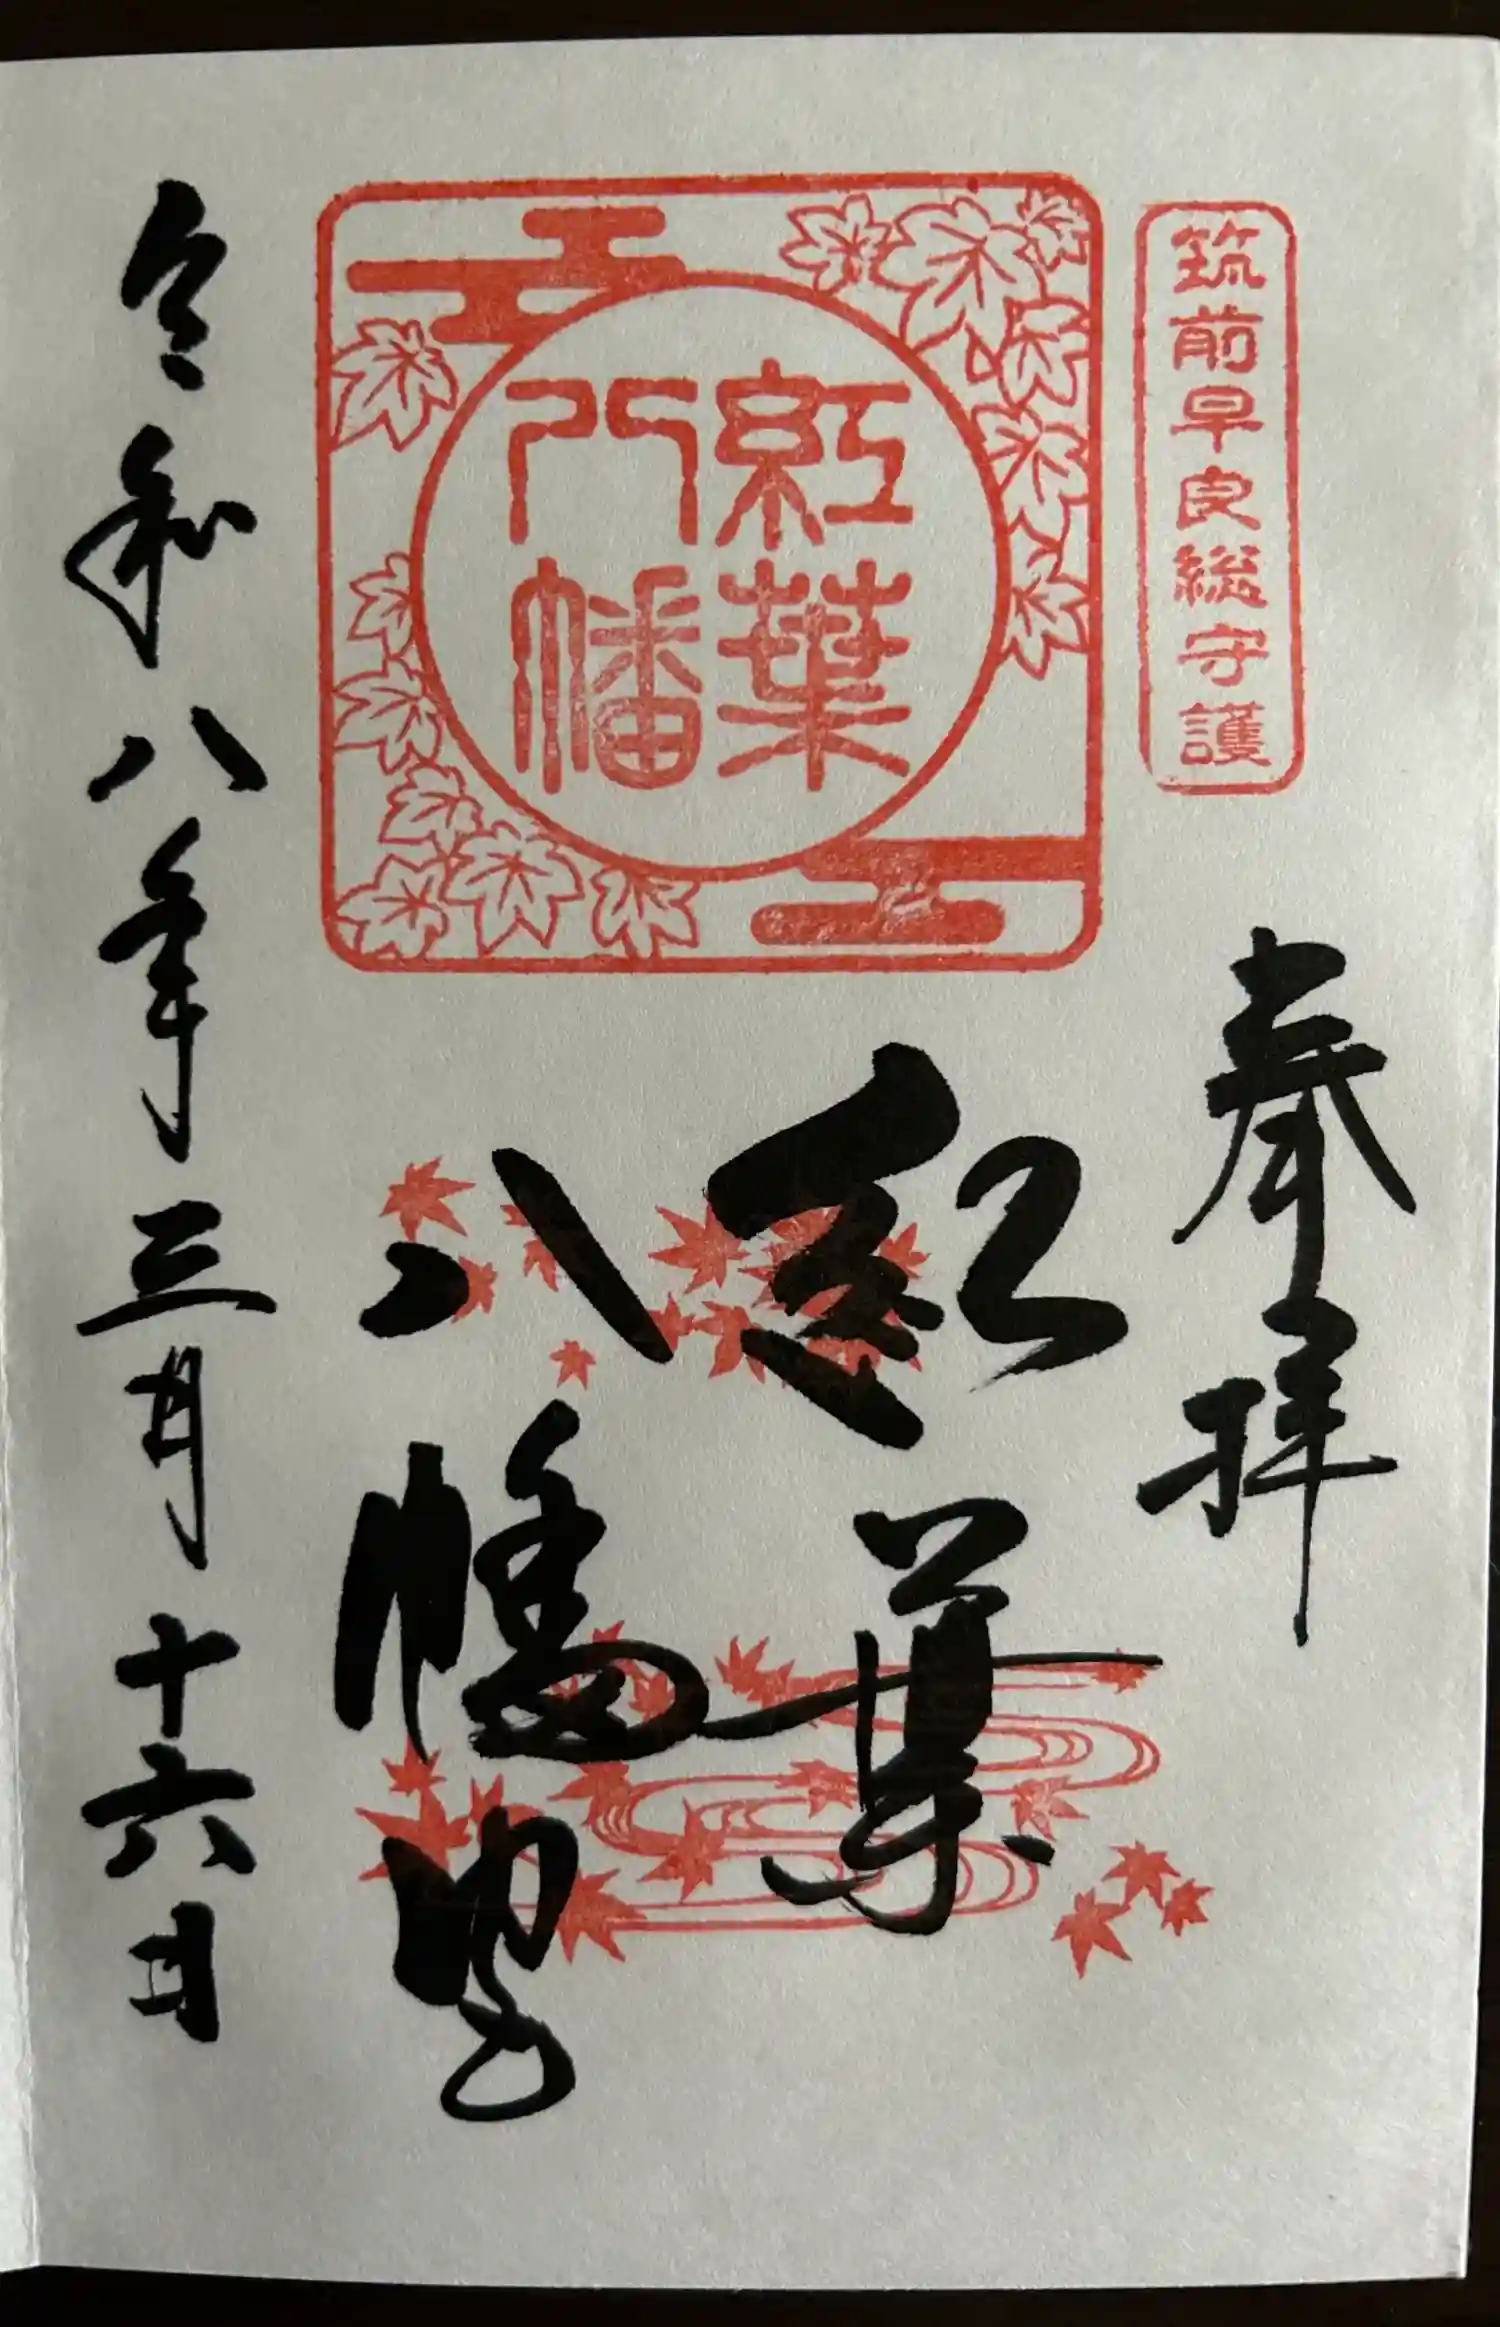 筑前早良総守護
奉拝
紅葉
八幡
紅葉
八幡宮
令和八年三月十六日